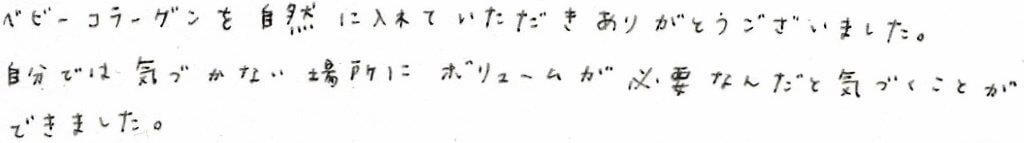 ベビーコラーゲンを自然に入れていただきありがとうございました。
自分では気づかない場所にボリュームが必要なんだと気づくことが
できました。